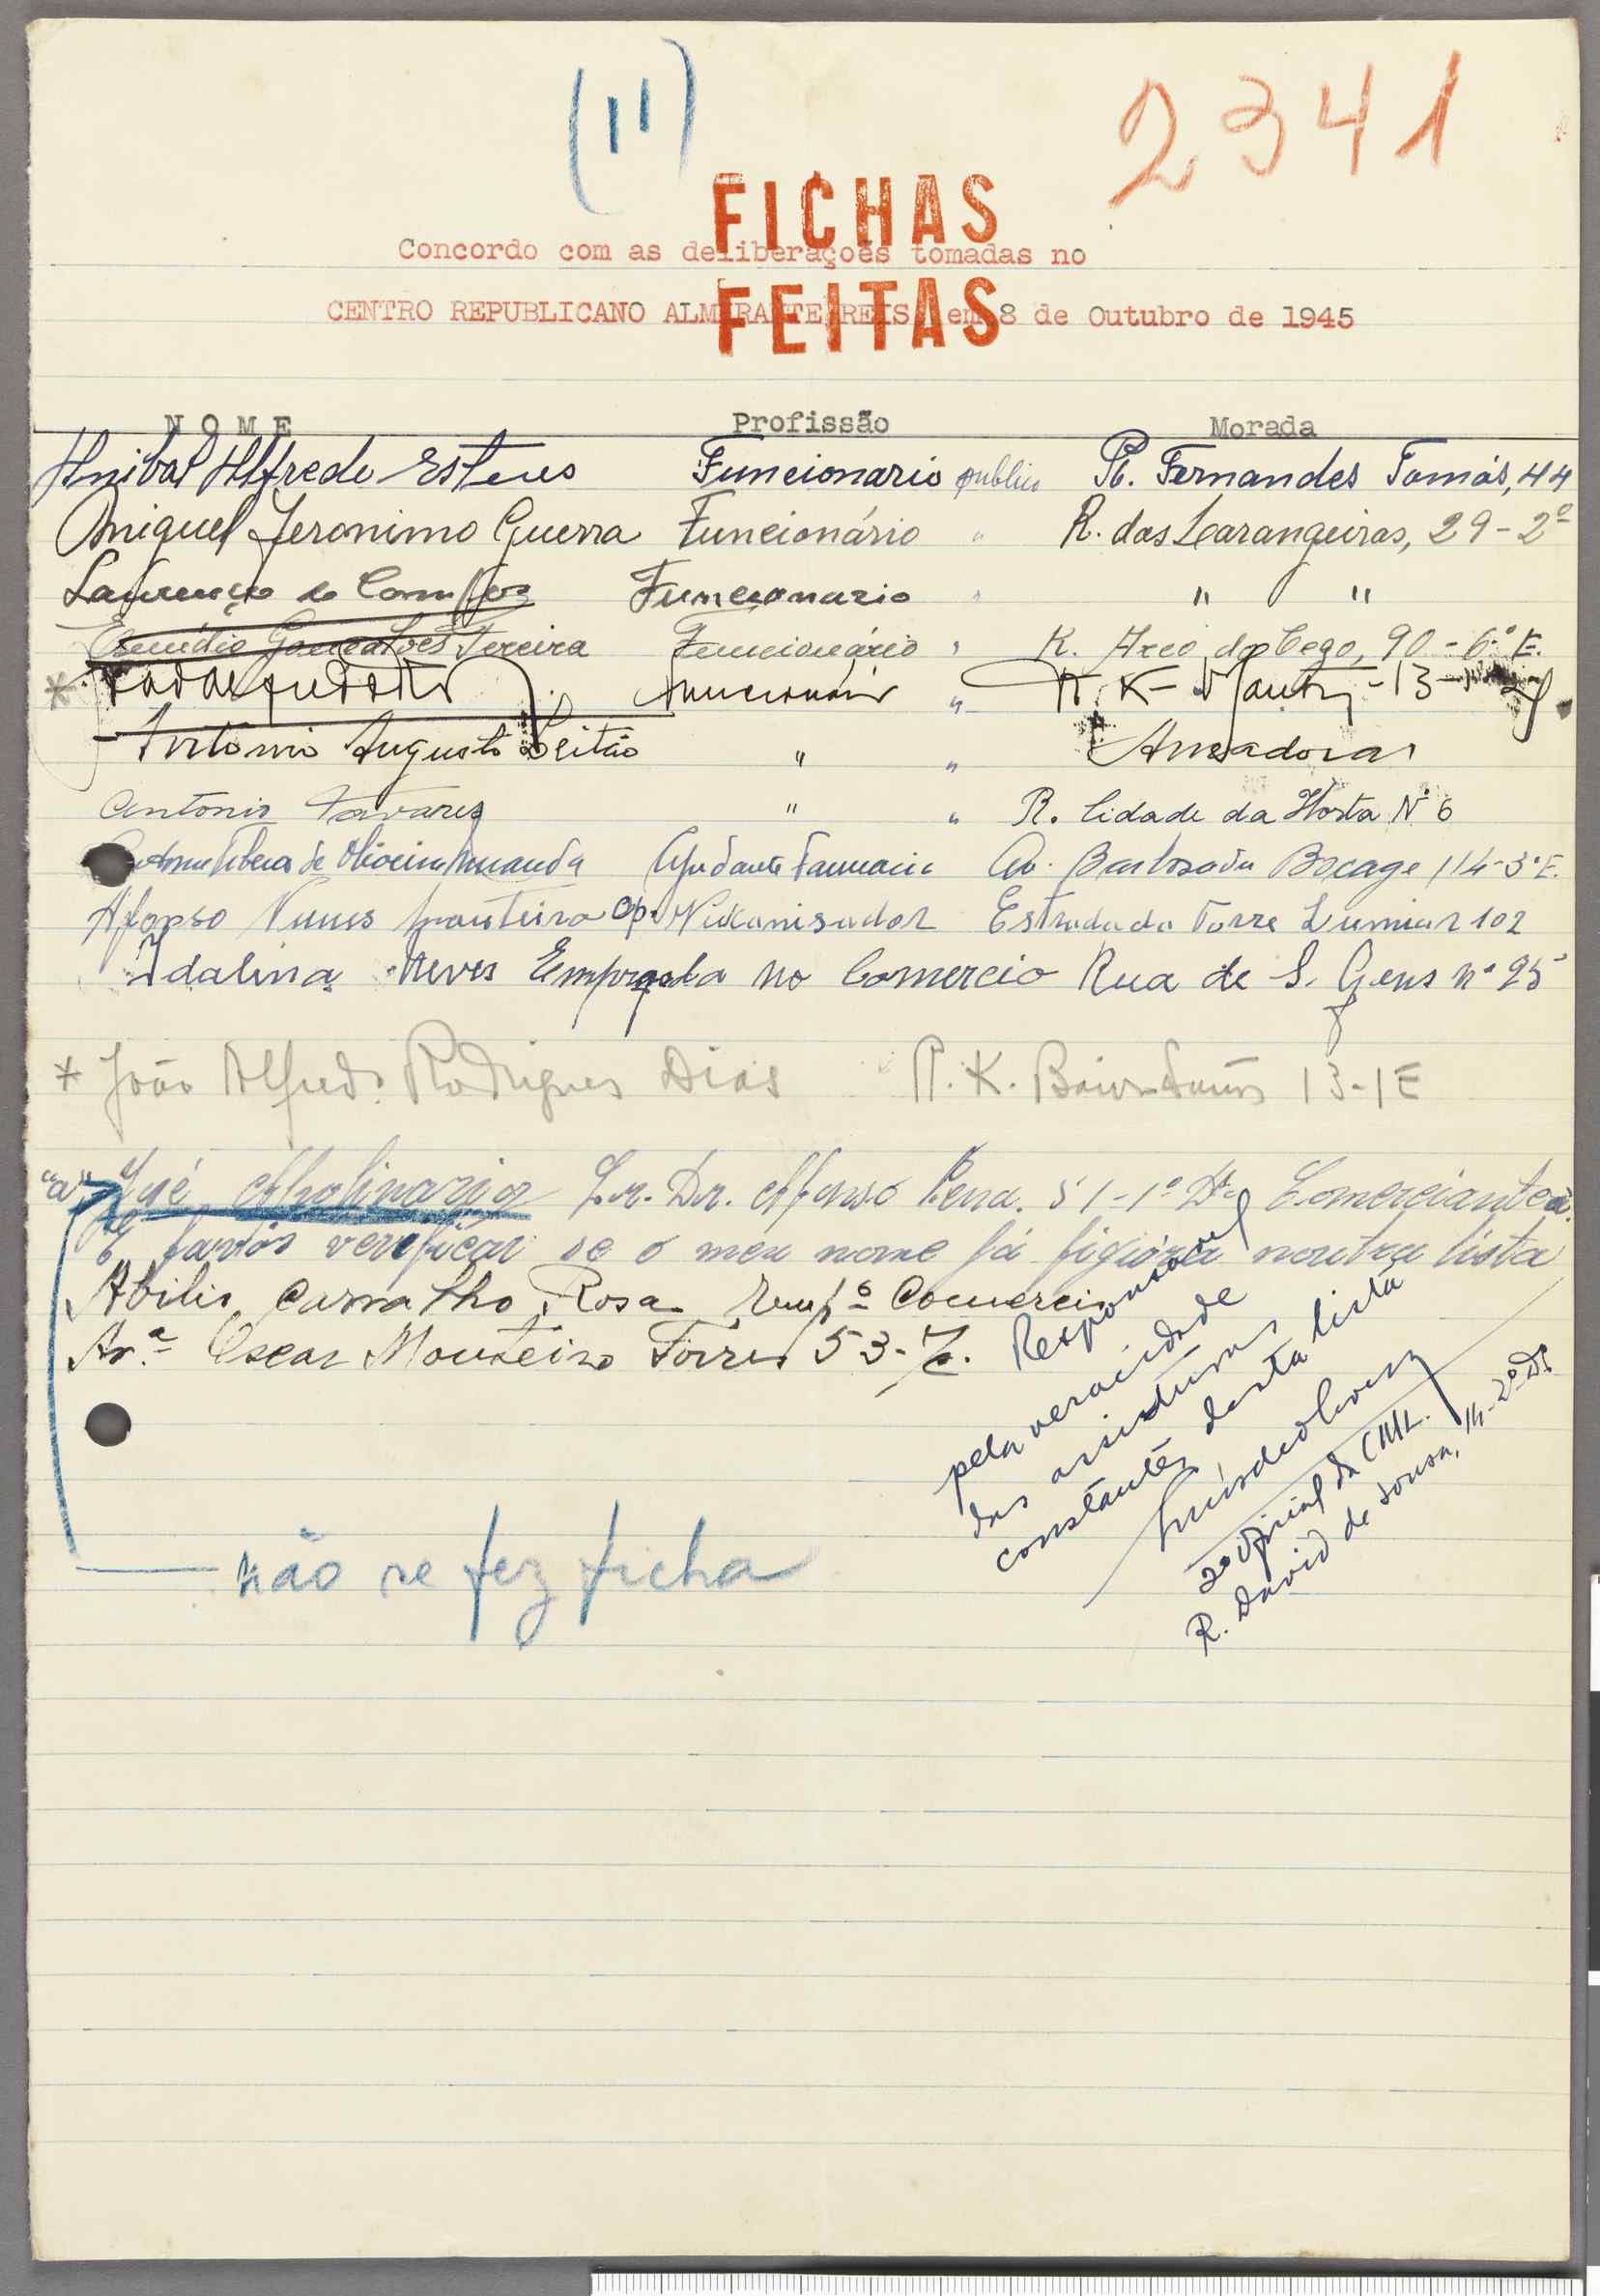 (11)
2341
FICHAS
Concordo com as deliberações tomadas no
FEITAS
CENTRO REPUBLICANO ALMIRANTE REIS, em 8 de Outubro de 1945
NOME Profissão Morada
Anibal Alfredo Esteves Funcionario publico R. Fernandes Tomás, 44
Miguel Jeronimo Guerra Funcionário " R. das Larangeiras, 29-2º
Funcionario " " "
Gonçalves Pereira Funcionário " R. Arco do Cego, 90-6º E.
* " R. K- 13-
Antonio Augusto Leitão " " Amadora
Antonio Tavares " " R. Cidade da Horta Nº 6
de Oliveira Miranda Ajudante Farmacia Av. Barbosa du Bocage 114-3º E.
Afonso Nunes Monteiro Op. Estrada da Torre Lumiar 102
Idalina Neves Empregada no Comercio Rua de S. Gens nº 25
* João Alfredo Rodrigues Dias R. K. Bairro 13-1E
"a" José Apolinario Lr. Dr. Afonso Pena. 51-1º Dto Comerciante a.
É favôr verificar se o meu nome já figióra noutra lista
Abilio Carvalho Rosa Empº Comercio
Av.ª Oscar Monteiro Torres 53-
Responsavel
pela veracidade
das assinaturas
constantes desta lista
2º Oficial da CML.
R. David de Sousa, 14-2º Dt
não se fez ficha